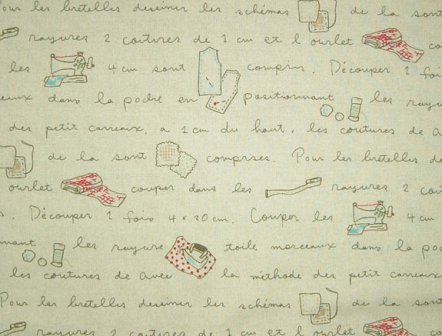 Pour les bretelles dessiner les schémas de la sont
rayures 2 coutures de 1 cm et l ourlet co
les 4 cm sont compris. Découper 1 fois
ceaux dans la poche en positionnant les rayu
des petit carreaux, a 1 cm du haut, les coutures de a
de la sont comprises. Pour les bretelles de
ourlet couper dans les rayures 2 cou
s. Découper 1 fois 4 x 20 cm. Couper les 4 cm
nant les rayure toile morceaux dans la poc
les coutures de avec la méthode des petit carreaux
Pour les bretelles dessiner les schémas de la sont
rayures 2 coutures de 1 cm et l ourlet co